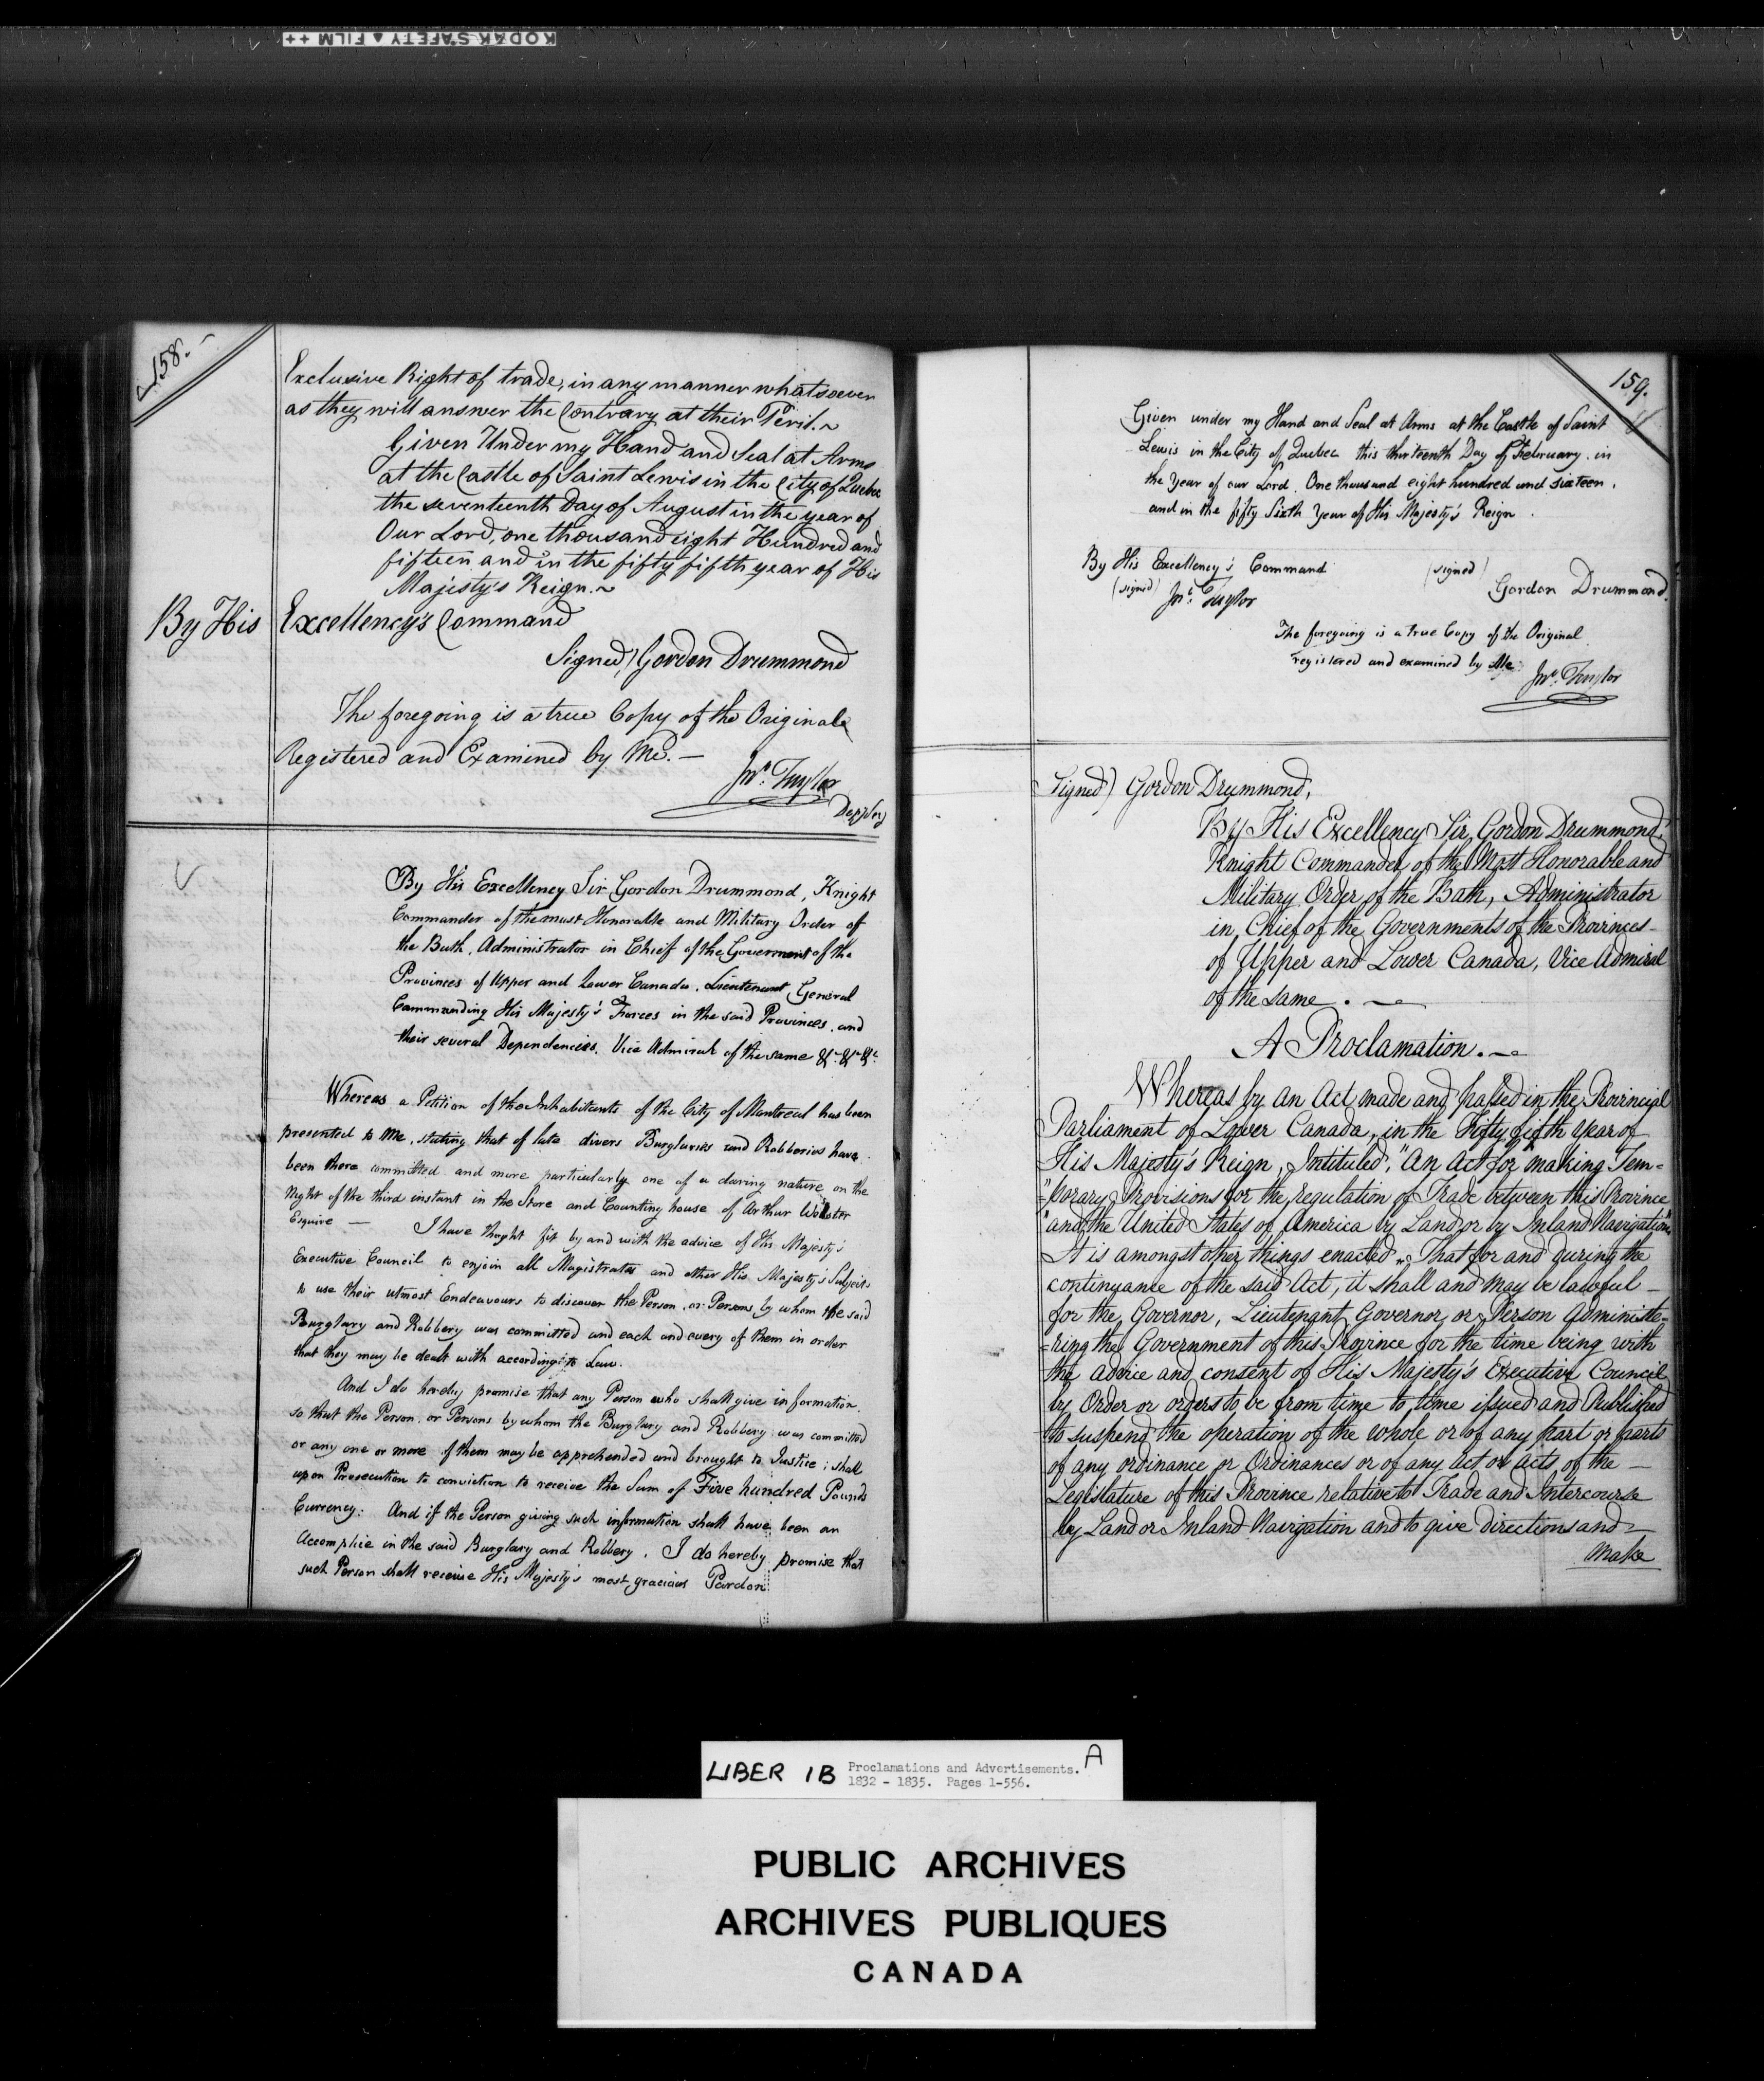 KODAK SAFETY ▲ FILM ++
158.
Exclusive Right of trade, in any manner whatsoever
as they will answer the Contrary at their Peril. ~
Given Under my Hand and Seal at Arms
at the Castle of Saint Lewis in the City of Quebec
the seventeenth Day of August in the year of
Our Lord, one thousand eight Hundred and
fifteen and in the fifty fifth year of His
Majesty's Reign. ~
By His Excellency's Command
Signed) Gordon Drummond
The foregoing is a true Copy of the Original
Registered and Examined by Me. —
Jnº. Taylor
Dep Sey
By His Excellency Sir Gordon Drummond, Knight
Commander of the most Honorable and Military Order of
the Bath, Administrator in Chief of the Government of the
Provinces of Upper and Lower Canada, Lieutenant General
Commanding His Majesty's Forces in the said Provinces, and
their several Dependencies. Vice Admiral of the same &c &c &c
Whereas a Petition of the Inhabitants of the City of Montreal has been
presented to Me, stating that of late divers Burglaries and Robberies have
been there committed and more particularly one of a daring nature on the
Night of the third instant in the Store and Counting house of Arthur Webster
Esquire — I have thoght fit by and with the advice of His Majesty's
Executive Council to enjoin all Magistrates and other His Majesty's Subjects
to use their utmost Endeavours to discover the Person, or Persons by whom the said
Burglary and Robbery was committed and each and every of them in order
that they may be dealt with according to Law.
And I do hereby promise that any Person who shall give information,
so that the Person, or Persons by whom the Burglary and Robbery was committed
or any one or more of them may be apprehended and brought to Justice; shall
upon Prosecution to conviction to receive the Sum of Five hundred Pounds
Currency: And if the Person giving such information shall have been an
Accomplice in the said Burglary and Robbery, I do hereby promise that
such Person shall receive His Majesty's most gracious Pardon
159.
Given under my Hand and Seal at Arms at the Castle of Saint
Lewis in the City of Quebec this thirteenth Day of February, in
the Year of our Lord, One thousand eight hundred and sixteen,
and in the fifty Sixth Year of His Majesty's Reign.
By His Excellency's Command (signed)
(signed) Jnº. Taylor Gordon Drummond.
The foregoing is a true Copy of the Original
registered and examined by Me
Jnº. Taylor
Signed) Gordon Drummond,
By His Excellency Sir Gordon Drummond,
Knight Commander of the Most Honorable and
Military Order of the Bath, Administrator
in Chief of the Governments of the Provinces
of Upper and Lower Canada, Vice Admiral
of the same. —
A Proclamation. —
Whereas by an Act made and passed in the Provincial
Parliament of Lower Canada, in the Fifty fifth Year of
His Majesty's Reign, Intituled, "An Act for making Tem-
"porary Provisions for the regulation of Trade between this Province
"and the United States of America by Land or by Inland Navigation"
It is amongst other things enacted "That for and during the
continuance of the said Act, it shall and may be lawful —
for the Governor, Lieutenant Governor, or Person Administe-
-ring the Government of this Province for the time being with
the advice and consent of His Majesty's Executive Council
by Order or orders to be from time to time issued and Published
to suspend the operation of the whole or of any part or parts
of any ordinance or Ordinances or of any act or acts of the —
Legislature of this Province relative to Trade and Intercourse
by Land or Inland Navigation and to give directions and —
Make
LIBER 1B Proclamations and Advertisements. A
1832 - 1835. Pages 1-556.
PUBLIC ARCHIVES
ARCHIVES PUBLIQUES
CANADA